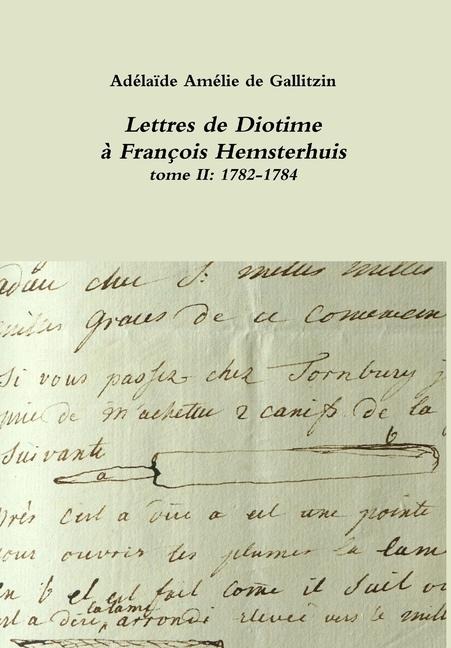 Adélaïde Amélie de Gallitzin
Lettres de Diotime
à François Hemsterhuis
tome II: 1782-1784
adieu cher S: milles milles
milles graces de ce
Si vous passez chez Tornbury j
de m'achetter 2 canifs de la
Suivante
b
a
C'est a dire a est une pointe
pour ouvrir les plumes la lam
b est fait come il Suit
la lame
a dire arrondi elevée vers le mill